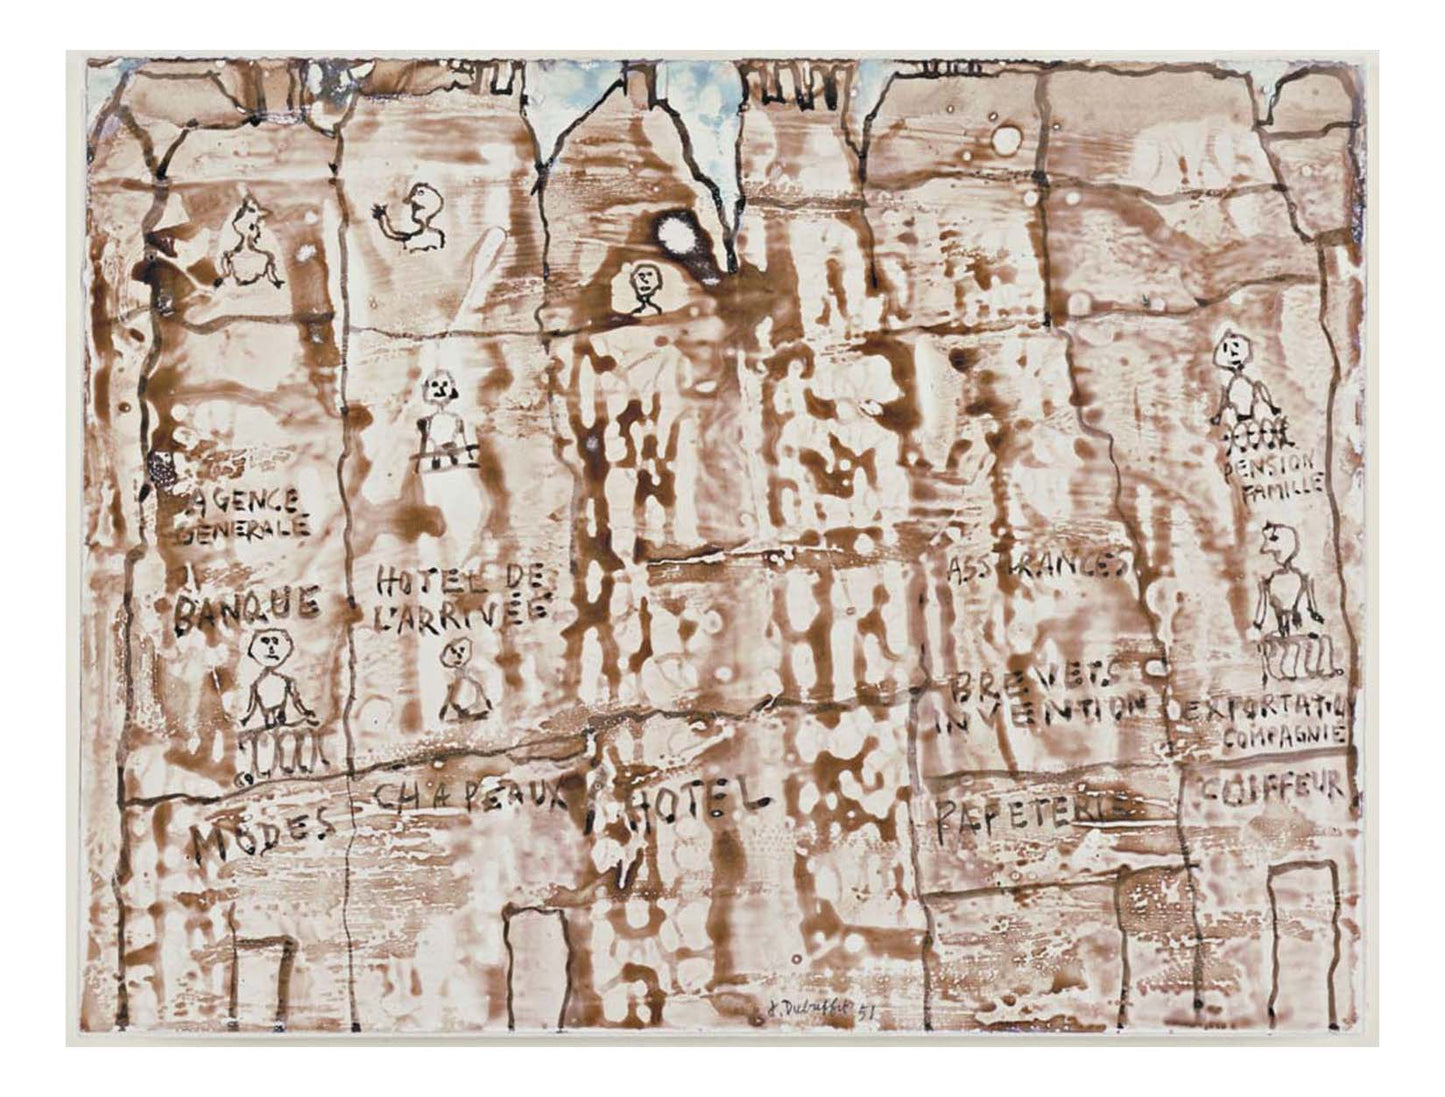 AGENCE
GENERALE
BANQUE
HOTEL DE
L'ARRIVÉE
PENSION
FAMILLE
ASSURANCES
BREVETS
INVENTION
EXPORTATION
COMPAGNIE
MODES
CHAPEAUX
HOTEL
PAPETERIE
COIFFEUR
J. Dubuffet 51